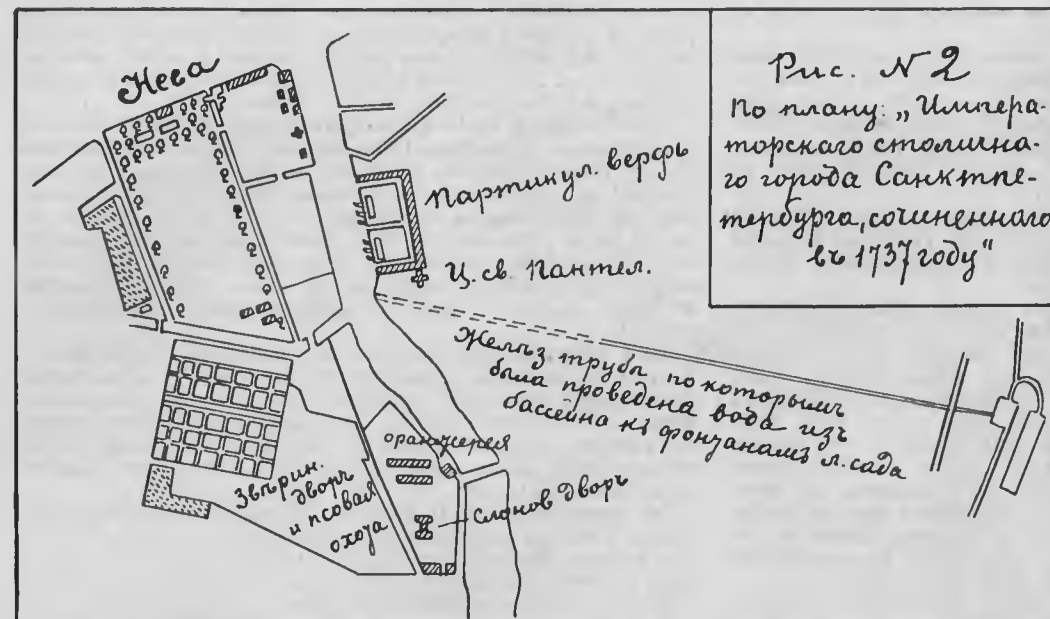 Нева
Рис. № 2
По плану: „Импера-
торскаго столична-
го города Санктпе-
тербурга, сочиненнаго
въ 1737 году"
Партикул. верфь
Ц. св. Пантел.
Желѣз трубы по которымъ
была проведена вода изъ
бассейна къ фонтанамъ л. сада
оранжерея
Слонов дворъ
Звѣрин.
дворъ
и псовая
охота